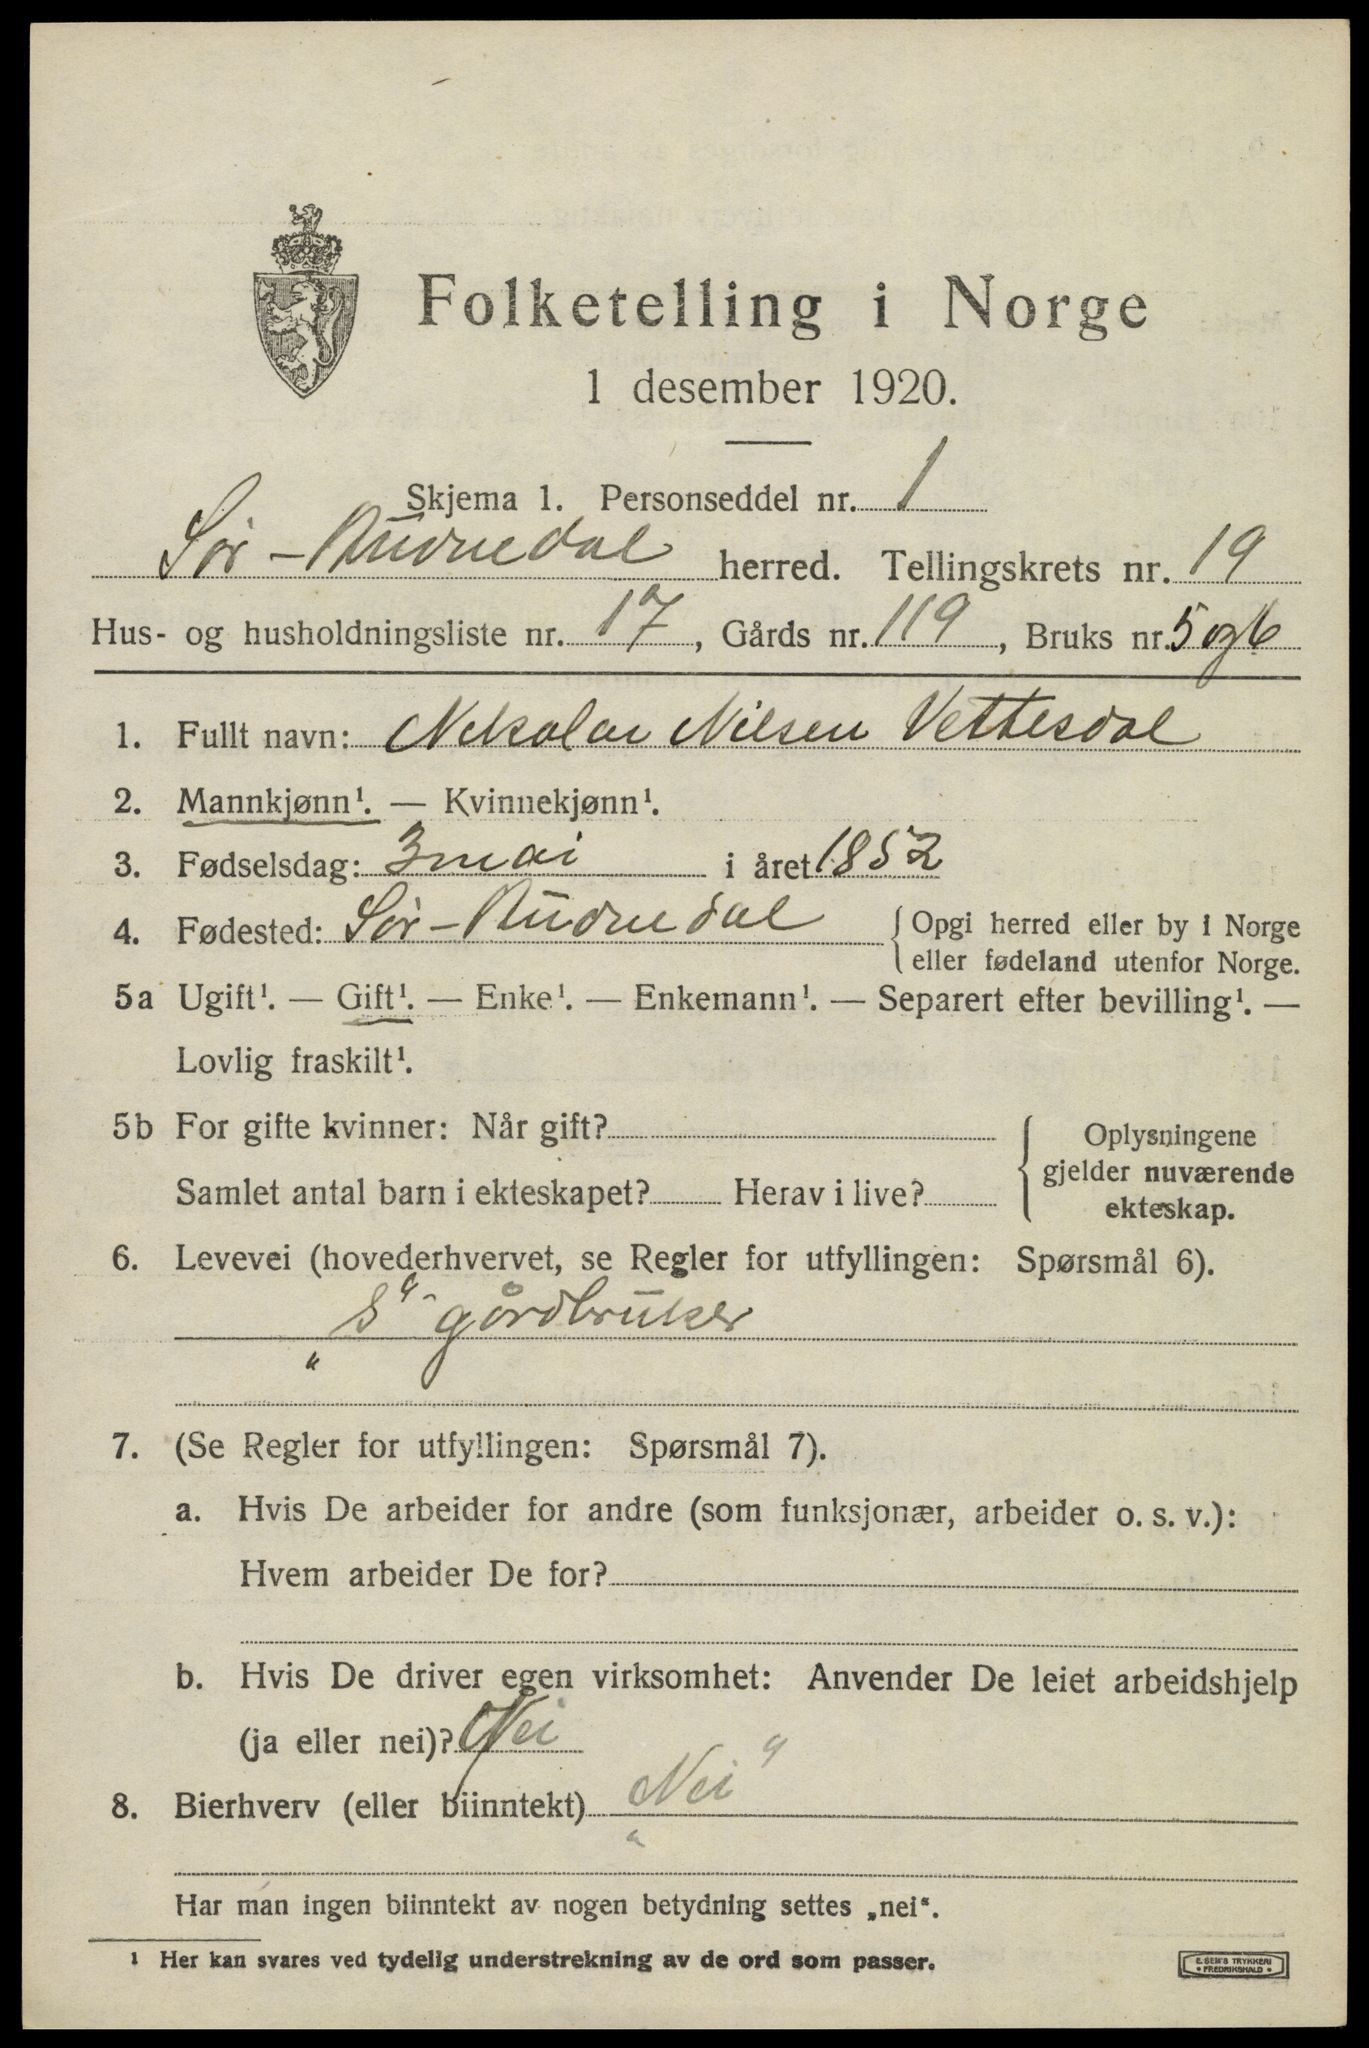 Folketelling i Norge
1 desember 1920.
Skjema 1. Personseddel nr. 1
Sør-Audnedal herred. Tellingskrets nr. 19
Hus- og husholdningsliste nr. 17, Gårds nr. 119, Bruks nr. 5 og 6
1. Fullt navn: Nikolai Nilsen Vettesdal
2. Mannkjønn¹. — Kvinnekjønn¹.
3. Fødselsdag: 3 mai i året 1852
4. Fødested: Sør-Audnedal { Opgi herred eller by i Norge
eller fødeland utenfor Norge.
5a Ugift¹. — Gift¹. — Enke¹. — Enkemann¹. — Separert efter bevilling¹. —
Lovlig fraskilt¹.
5b For gifte kvinner: Når gift? { Oplysningene
gjelder nuværende
Samlet antal barn i ekteskapet? Herav i live?
ekteskap.
6. Levevei (hovederhvervet, se Regler for utfyllingen: Spørsmål 6).
„S“ gårdbruker
7. (Se Regler for utfyllingen: Spørsmål 7).
a. Hvis De arbeider for andre (som funksjonær, arbeider o. s. v.):
Hvem arbeider De for?
b. Hvis De driver egen virksomhet: Anvender De leiet arbeidshjelp
(ja eller nei)? Nei
8. Bierhverv (eller biinntekt) „Nei“
Har man ingen biinntekt av nogen betydning settes „nei“.
¹ Her kan svares ved tydelig understrekning av de ord som passer.
E. SEM'S TRYKKERI
• FREDRIKSHALD •